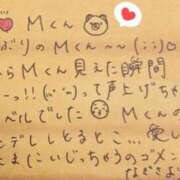 Mくん
ぶりのMくん~~(:;)
らMくん見えた瞬間
ーっ!!(ﾟ∀ﾟ)って声上げちゃ
ベルでした Mくんの
デレしとるとこ...愛し
たまにいじっちゃうのゴメン
なぎさよ